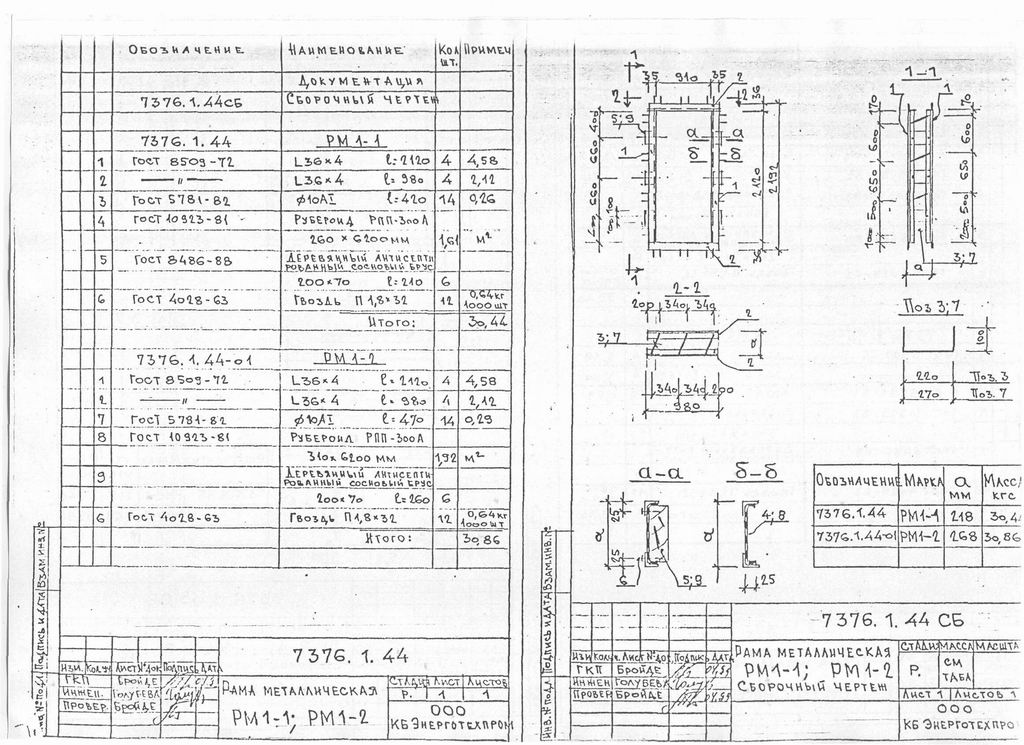 Обозначение Наименование Кол шт. Примеч
Документация
7376.1.44СБ Сборочный чертеж
7376.1.44 РМ1-1
1 Гост 8509-72 L36×4 ℓ=2120 4 4,58
2 — " — L36×4 ℓ=980 4 2,12
3 Гост 5781-82 φ10АI ℓ=420 14 0,26
4 Гост 10923-81 Рубероид РПП-300А
260 × 6200мм 1,61 м²
5 Гост 8486-88 Деревянный антисепти
рованный сосновый брус
200×70 ℓ=210 6
6 Гост 4028-63 Гвоздь П 1,8×32 12 0,64кг 1000 шт
Итого: 30,44
7376.1.44-01 РМ1-2
1 Гост 8509-72 L36×4 ℓ=2120 4 4,58
2 — " — L36×4 ℓ=980 4 2,12
7 Гост 5781-82 φ10АI ℓ=470 14 0,29
8 Гост 10923-81 Рубероид РПП-300А
310×6200 мм 1,92 м²
9 Деревянный антисепти
рованный сосновый брус
200×70 ℓ=260 6
6 Гост 4028-63 Гвоздь П1,8×32 12 0,64кг 1000 шт
Итого: 30,86
Подпись и дата Взам.инв.№
7376.1.44
Изм. Кол.уч Лист №док Подпись Дата
ГКП Бройде
Инжен. Голубева
Провер. Бройде
Рама металлическая
РМ1-1; РМ1-2
Стадия Лист Листов
Р. 1 1
ООО
КБ Энерготехпром
1 1
35 910 35 2
2 2
36
5; 9
400 660 660
а а
б б
1
1
100
2120
2192
2
36
1
1-1
1 1
170 600 650 500 100
70 600 650 500 200
а
3; 7
2-2
200 340 340
2
3; 7
а
2
340 340 200
980
Поз 3; 7
100
220 Поз. 3
270 Поз. 7
а-а
25
а
25
6 5; 9
б-б
а
4; 8
25
Обозначение Марка а мм Масс/ кгс
7376.1.44 РМ1-1 218 30,4
7376.1.44-01 РМ1-2 268 30,86
Инв.№ подл. Подпись и дата Взам.инв.№
7376.1.44 СБ
Изм Кол.уч. Лист №док. Подпись Дата
ГКП Бройде
Инжен Голубева
Провер Бройде
Рама металлическая
РМ1-1; РМ1-2
Сборочный чертеж
Стадия Масса Масшта
Р. см табл.
Лист 1 Листов 1
ООО
КБ Энерготехпро